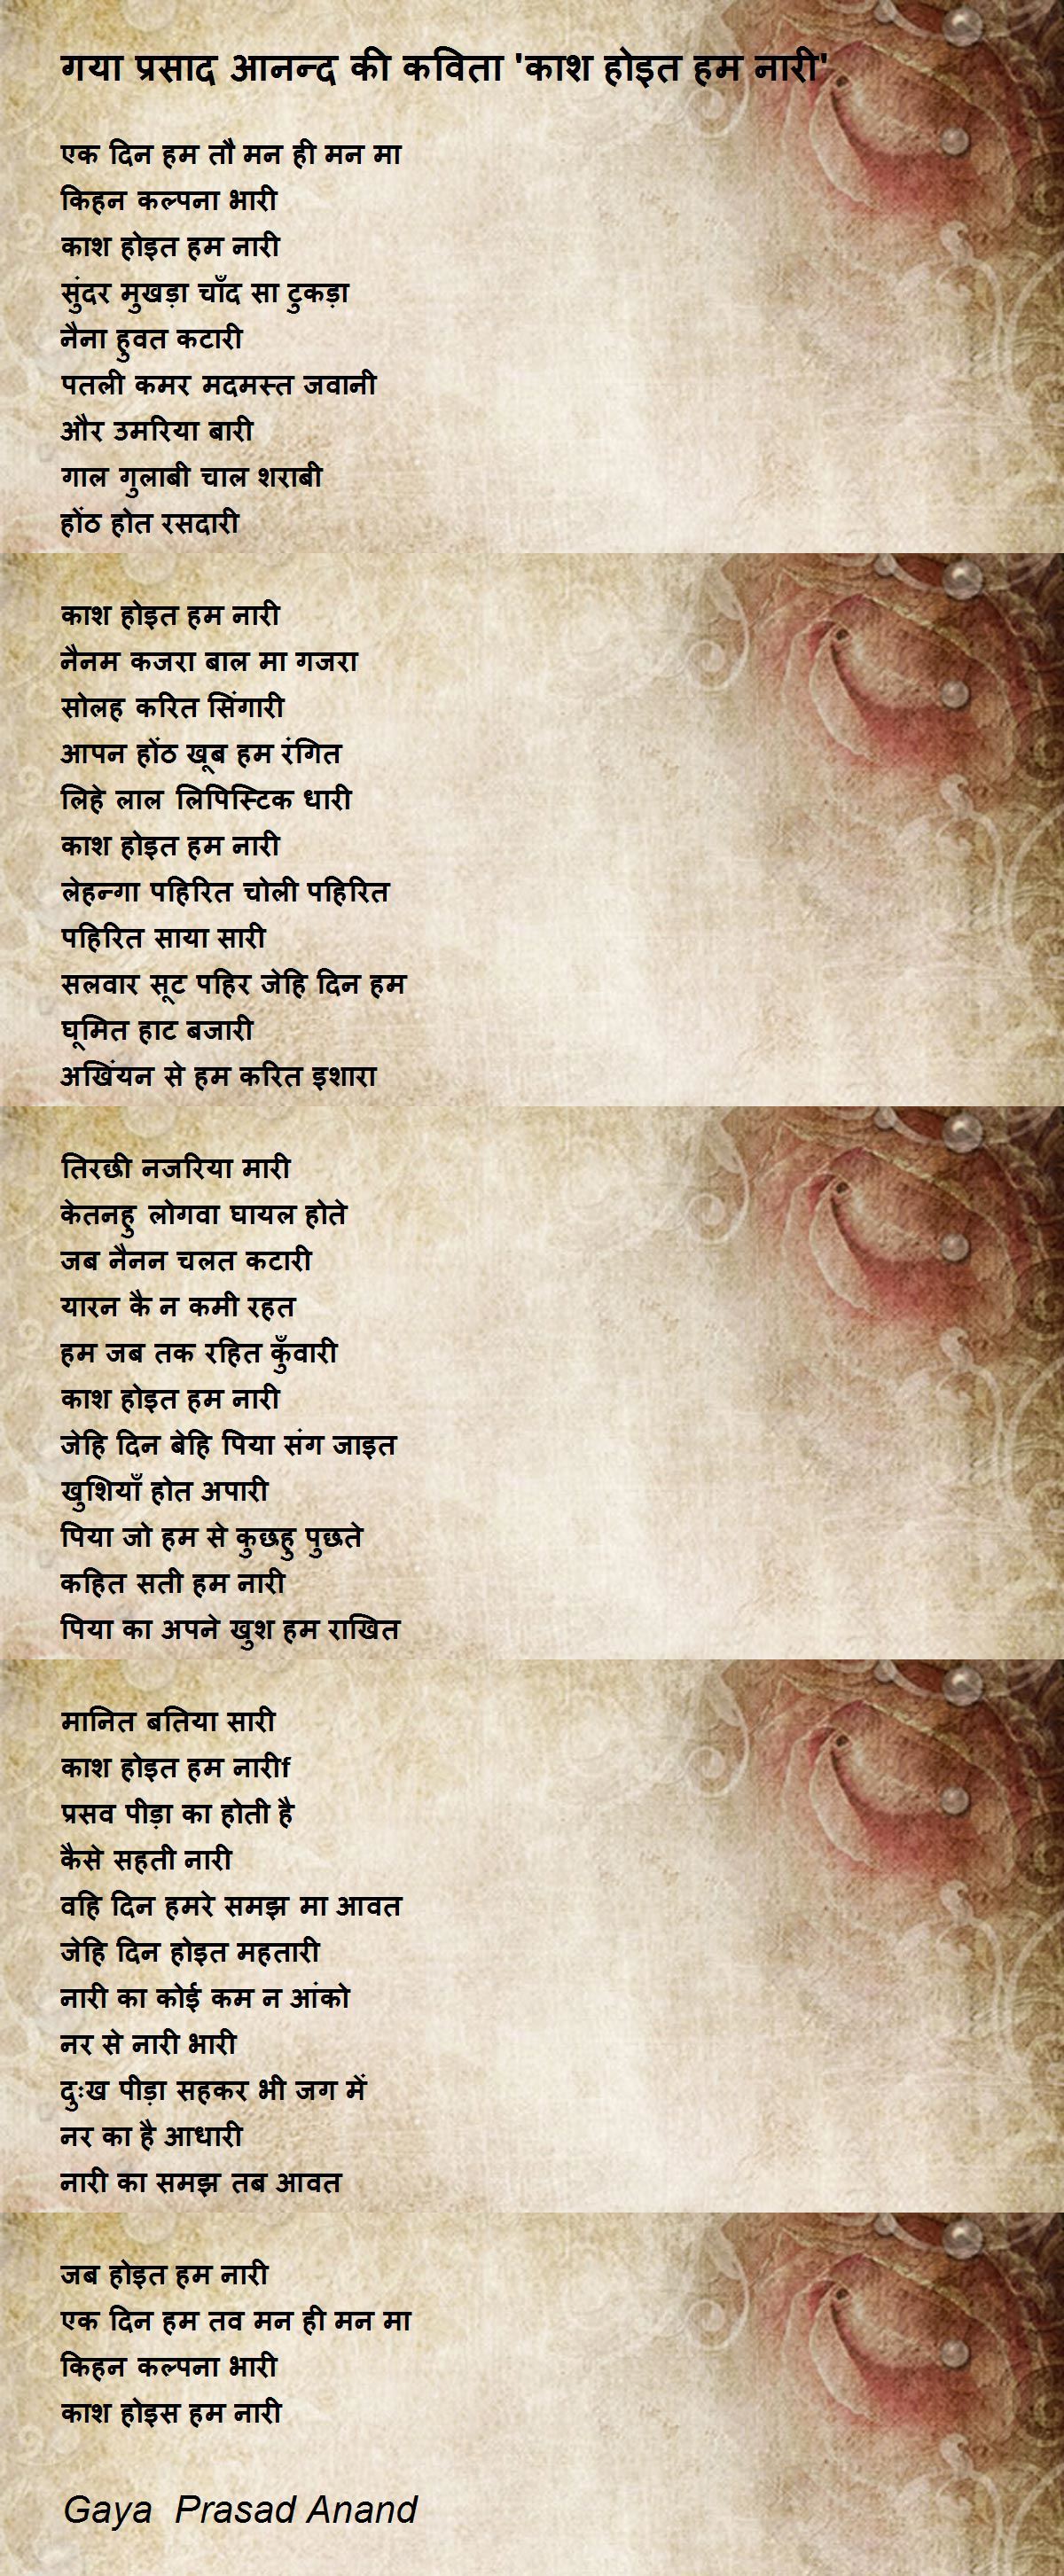 गया प्रसाद आनन्द की कविता 'काश होइत हम नारी'
एक दिन हम तौ मन ही मन मा
किहन कल्पना भारी
काश होइत हम नारी
सुंदर मुखड़ा चाँद सा टुकड़ा
नैना हुवत कटारी
पतली कमर मदमस्त जवानी
और उमरिया बारी
गाल गुलाबी चाल शराबी
होंठ होत रसदारी
काश होइत हम नारी
नैनम कजरा बाल मा गजरा
सोलह करित सिंगारी
आपन होंठ खूब हम रंगित
लिहे लाल लिपिस्टिक धारी
काश होइत हम नारी
लेहन्गा पहिरित चोली पहिरित
पहिरित साया सारी
सलवार सूट पहिर जेहि दिन हम
घूमित हाट बजारी
अखिंयन से हम करित इशारा
तिरछी नजरिया मारी
केतनहु लोगवा घायल होते
जब नैनन चलत कटारी
यारन कै न कमी रहत
हम जब तक रहित कुँवारी
काश होइत हम नारी
जेहि दिन बेहि पिया संग जाइत
खुशियाँ होत अपारी
पिया जो हम से कुछहु पुछते
कहित सती हम नारी
पिया का अपने खुश हम राखित
मानित बतिया सारी
काश होइत हम नारीf
प्रसव पीड़ा का होती है
कैसे सहती नारी
वहि दिन हमरे समझ मा आवत
जेहि दिन होइत महतारी
नारी का कोई कम न आंको
नर से नारी भारी
दुःख पीड़ा सहकर भी जग में
नर का है आधारी
नारी का समझ तब आवत
जब होइत हम नारी
एक दिन हम तव मन ही मन मा
किहन कल्पना भारी
काश होइस हम नारी
Gaya Prasad Anand